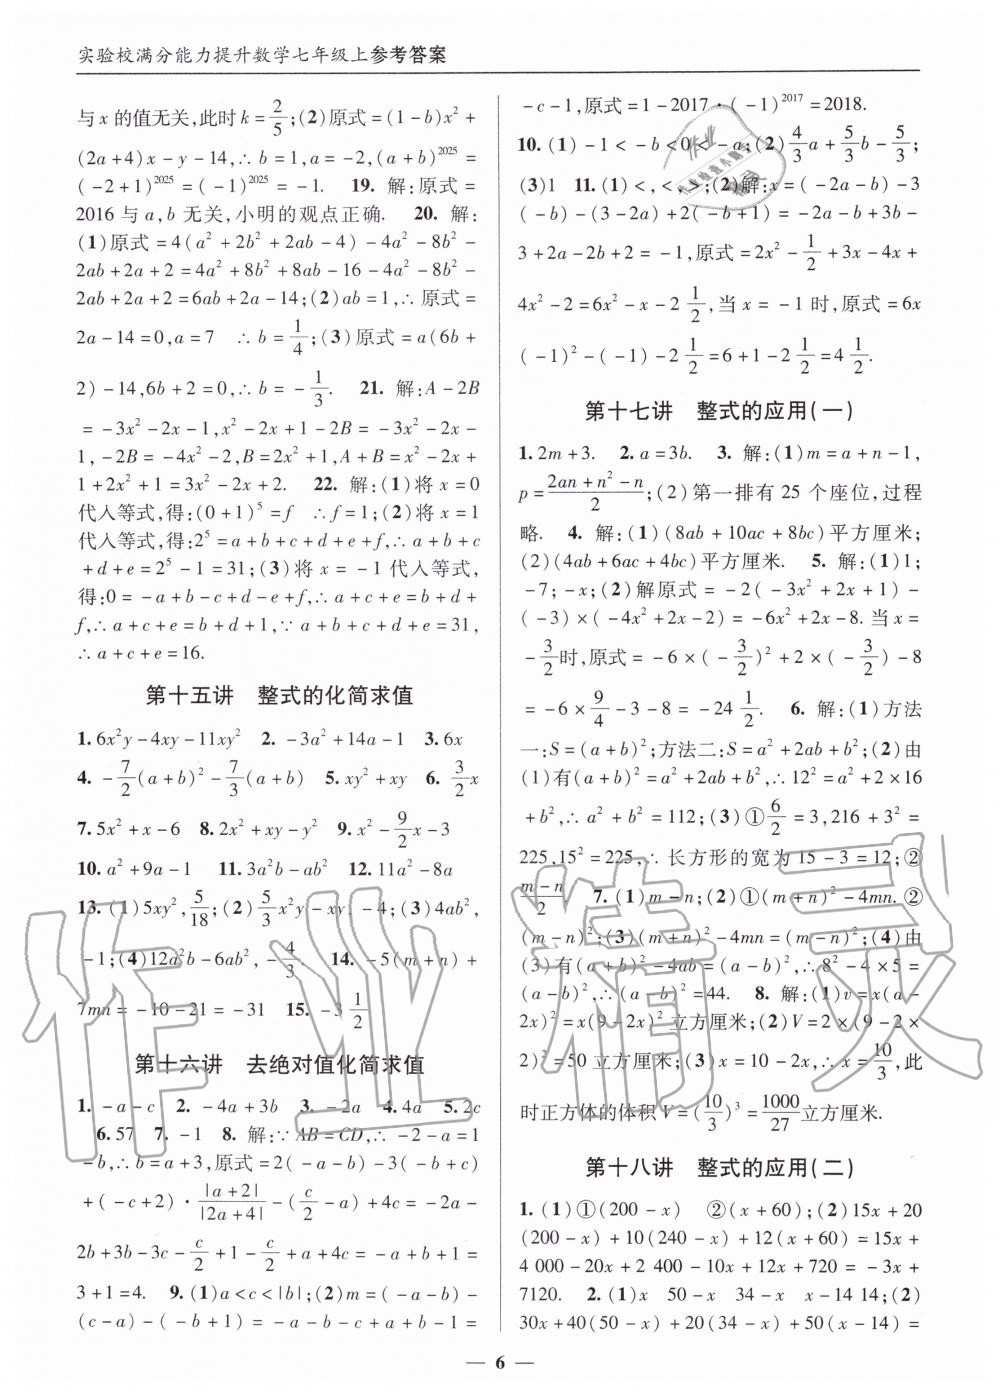 实验校满分能力提升数学七年级上参考答案
与 x 的值无关,此时 k = 2/5;(2)原式 = (1-b)x² +
(2a+4)x - y - 14,∴ b = 1,a = -2,(a+b)^2025 =
(-2+1)^2025 = (-1)^2025 = -1. 19. 解:原式 =
2016 与 a,b 无关,小明的观点正确. 20. 解:
(1)原式 = 4(a² + 2b² + 2ab - 4) - 4a² - 8b² -
2ab + 2a + 2 = 4a² + 8b² + 8ab - 16 - 4a² - 8b² -
2ab + 2a + 2 = 6ab + 2a - 14;(2)ab = 1,∴ 原式 =
2a - 14 = 0,a = 7 ∴ b = 1/4;(3)原式 = a(6b +
2) - 14,6b + 2 = 0,∴ b = -1/3. 21. 解:A - 2B
= -3x² - 2x - 1,x² - 2x + 1 - 2B = -3x² - 2x -
1, -2B = -4x² - 2,B = 2x² + 1,A + B = x² - 2x +
1 + 2x² + 1 = 3x² - 2x + 2. 22. 解:(1)将 x = 0
代入等式,得:(0+1)⁵ = f ∴ f = 1;(2)将 x = 1
代入等式,得:2⁵ = a + b + c + d + e + f,∴ a + b + c
+ d + e = 2⁵ - 1 = 31;(3)将 x = -1 代入等式,
得:0 = -a + b - c + d - e + f,∴ a + c + e = b + d +
f,∴ a + c + e = b + d + 1,∵ a + b + c + d + e = 31,
∴ a + c + e = 16.
第十五讲 整式的化简求值
1. 6x²y - 4xy - 11xy² 2. -3a² + 14a - 1 3. 6x
4. -7/2(a+b)² - 7/3(a+b) 5. xy² + xy 6. 3/2x
7. 5x² + x - 6 8. 2x² + xy - y² 9. x² - 9/2x - 3
10. a² + 9a - 1 11. 3a²b - ab² 12. 11a² - 8a
13. (1)5xy², 5/18;(2)5/3x²y - xy, -4;(3)4ab²,
-1;(4)12a²b - 6ab², -4/3. 14. -5(m+n) +
7mn = -10 - 21 = -31 15. -3 1/2
第十六讲 去绝对值化简求值
1. -a - c 2. -4a + 3b 3. -2a 4. 4a 5. 2c
6. 57 7. -1 8. 解:∵ AB = CD,∴ -2 - a = 1
-b,∴ b = a + 3,原式 = 2(-a-b) - 3(-b+c)
+ (-c+2)·|a+2|/|2a+4| - (c/2 - a) + 4c = -2a -
2b + 3b - 3c - c/2 + 1 - c/2 + a + 4c = -a + b + 1 =
3 + 1 = 4. 9. (1)a < c < |b|;(2)m = (-a-b) -
(c-a) - (-b+1) = -a - b - c + a + b - 1 =
-c - 1,原式 = 1 - 2017·(-1)^2017 = 2018.
10. (1) -1 < -b < 0 < -a;(2)4/3a + 5/3b - 5/3;
(3)1 11. (1)<,<,>;(2)解:x = (-2a-b) - 3
(-b) - (3-2a) + 2(-b+1) = -2a - b + 3b -
3 + 2a - 2b + 2 = -1,原式 = 2x² - 1/2 + 3x - 4x +
4x² - 2 = 6x² - x - 2 1/2,当 x = -1 时,原式 = 6x
(-1)² - (-1) - 2 1/2 = 6 + 1 - 2 1/2 = 4 1/2.
第十七讲 整式的应用(一)
1. 2m + 3. 2. a = 3b. 3. 解:(1)m = a + n - 1,
p = (2an + n² - n)/2;(2)第一排有 25 个座位,过程
略. 4. 解:(1)(8ab + 10ac + 8bc)平方厘米;
(2)(4ab + 6ac + 4bc)平方厘米. 5. 解:(1)1;
-7; -x;(2)解原式 = -2(-3x² + 2x + 1) -
(-3)×(-4x² + 2x - 2) = -6x² + 2x - 8. 当 x =
-3/2时,原式 = -6×(-3/2)² + 2×(-3/2) - 8
= -6×9/4 - 3 - 8 = -24 1/2. 6. 解:(1)方法
一:S = (a+b)²;方法二:S = a² + 2ab + b²;(2)由
(1)有(a+b)² = a² + 2ab + b²,∴ 12² = a² + 2×16
+ b²,∴ a² + b² = 112;(3)①6/2 = 3,216 + 3² =
225,15² = 225,∴ 长方形的宽为 15 - 3 = 12;②
(m-n)/2 7. (1)m - n;(2)①(m+n)² - 4mn. ②
(m-n)²;(3)(m+n)² - 4mn = (m-n)²;(4)由
(3)有(a+b)² - 4ab = (a-b)²,∴ 8² - 4×5 =
(a-b)²,∴ (a-b)² = 44. 8. 解:(1)v = x(a -
2x)² = x(9-2x)² 立方厘米;(2)V = 2×(9 - 2×
2)² = 50 立方厘米;(3)x = 10 - 2x,∴ x = 10/3,此
时正方体的体积 V = (10/3)³ = 1000/27立方厘米.
第十八讲 整式的应用(二)
1. (1)①(200 - x) ②(x + 60);(2)15x + 20
(200 - x) + 10(240 - x) + 12(x + 60) = 15x +
4 000 - 20x + 2 400 - 10x + 12x + 720 = -3x +
7120. 2. (1)x 50 - x 34 - x x - 14 14;(2)
30x + 40(50 - x) + 20(34 - x) + 50(x - 14) =
— 6 —
作业精灵